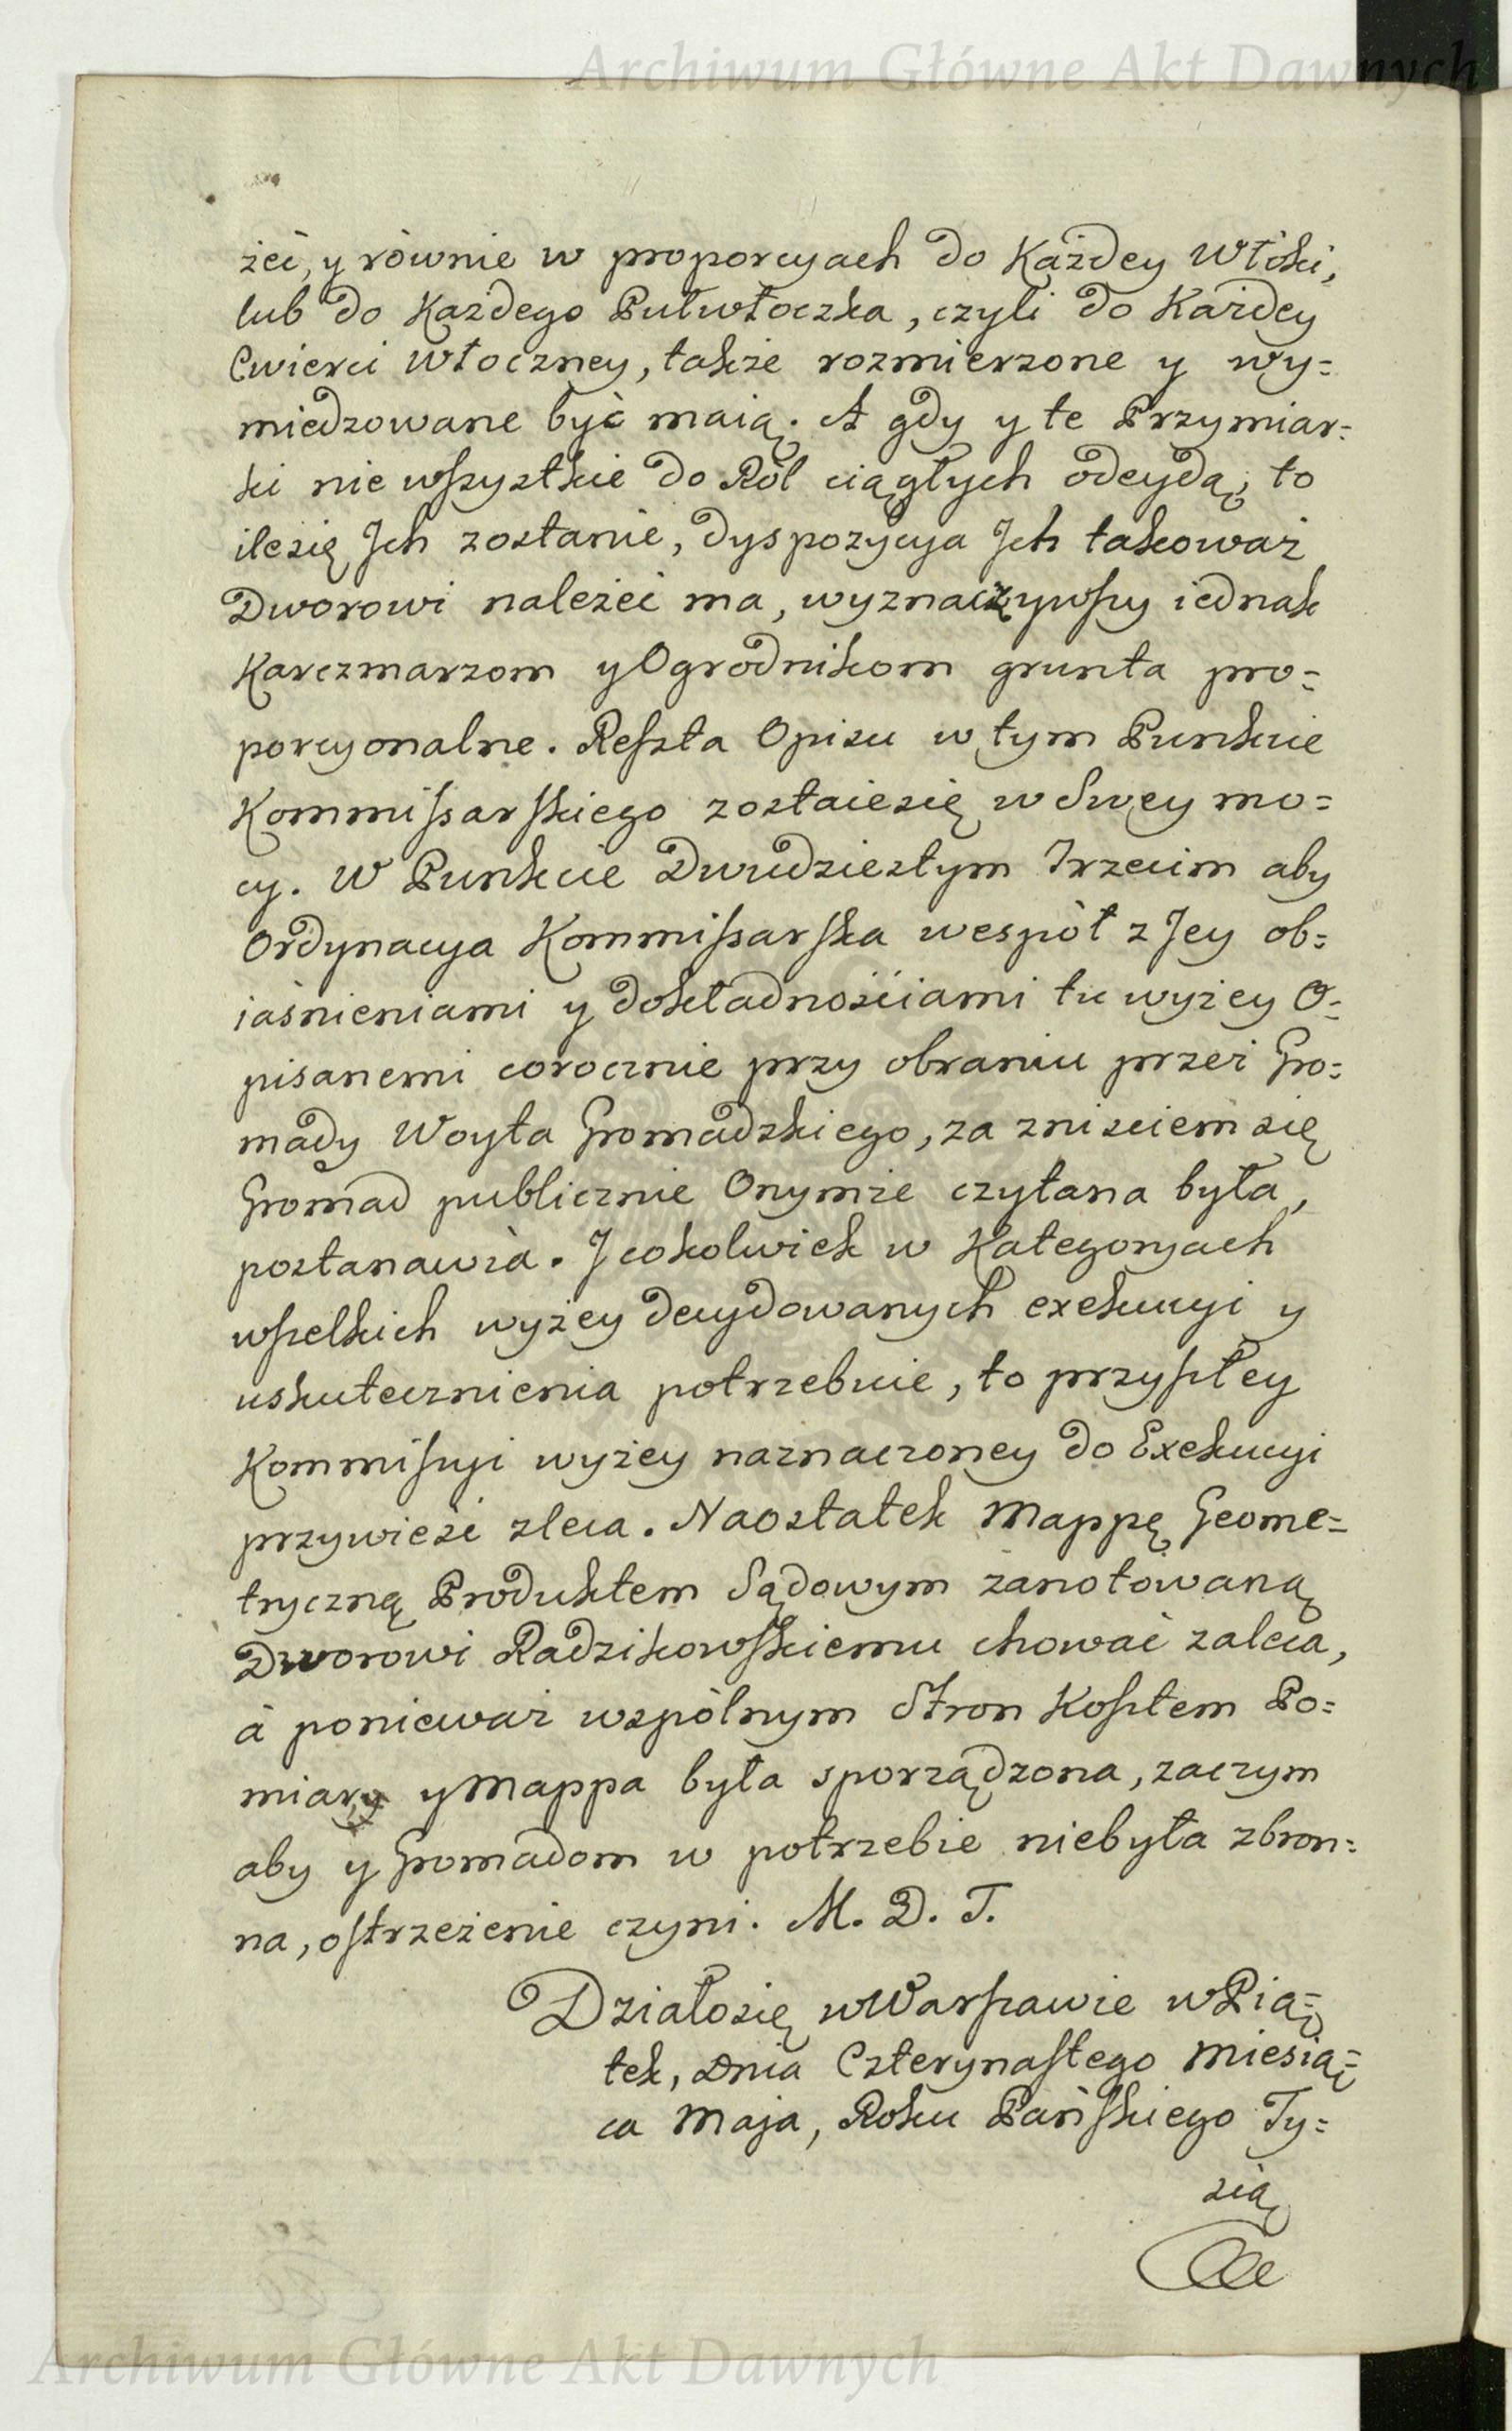 Archiwum Główne Akt Dawnych
żeć, y ròwnie w proporcyach do Każdey Włòki,
lub do Każdego Pułwłoczka, czyli do Każdey
Cwierci Włoczney, także rozmierzone y wy=
miedzowane być maią. A gdy y te Przymiar=
ki nie wszystkie do Ròl ciągłych odeydą, to
ilesię Jch zostanie, dyspozycya Jch takoważ
Dworowi należeć ma, wyznaczywszy iednak
Karczmarzom y Ogrodnikom grunta pro=
porcyonalne. Reszta Opisu w tym Punkcie
Kommissarskiego zostaiesię w Swey mo=
cy. W Punkcie Dwudziestym Trzecim aby
Ordynacya Kommissarska wespòł z Jey ob=
iaśnieniami y dokładnościami tu wyżey O=
pisanemi corocznie przy obraniu przez Gro=
mady Woyta Gromadzkiego, za zniściem się
Gromad publicznie Onymże czytana była,
postanawia. J cokolwiek w Kategoryach
wszelkich wyżey decydowanych exekucyi y
uskutecznienia potrzebuie, to przyszłey
Kommissyi wyżey naznaczoney do Exekucyi
przywieść zleca. Naostatek Mappę Geome=
tryczną Produktem Sądowym zanotowaną
Dworowi Radzikowskiemu chować zaleca,
à ponieważ wspòlnym Stron Kosztem Po=
miary y Mappa była sporządzona, zaczym
aby y Gromadom w potrzebie niebyła zbron=
na, ostrzeżenie czyni. M. D. T.
Działosię w Warszawie w Pią=
tek, Dnia Czterynastego Miesią=
ca Maja, Roku Pańskiego Ty=
sią
Archiwum Główne Akt Dawnych